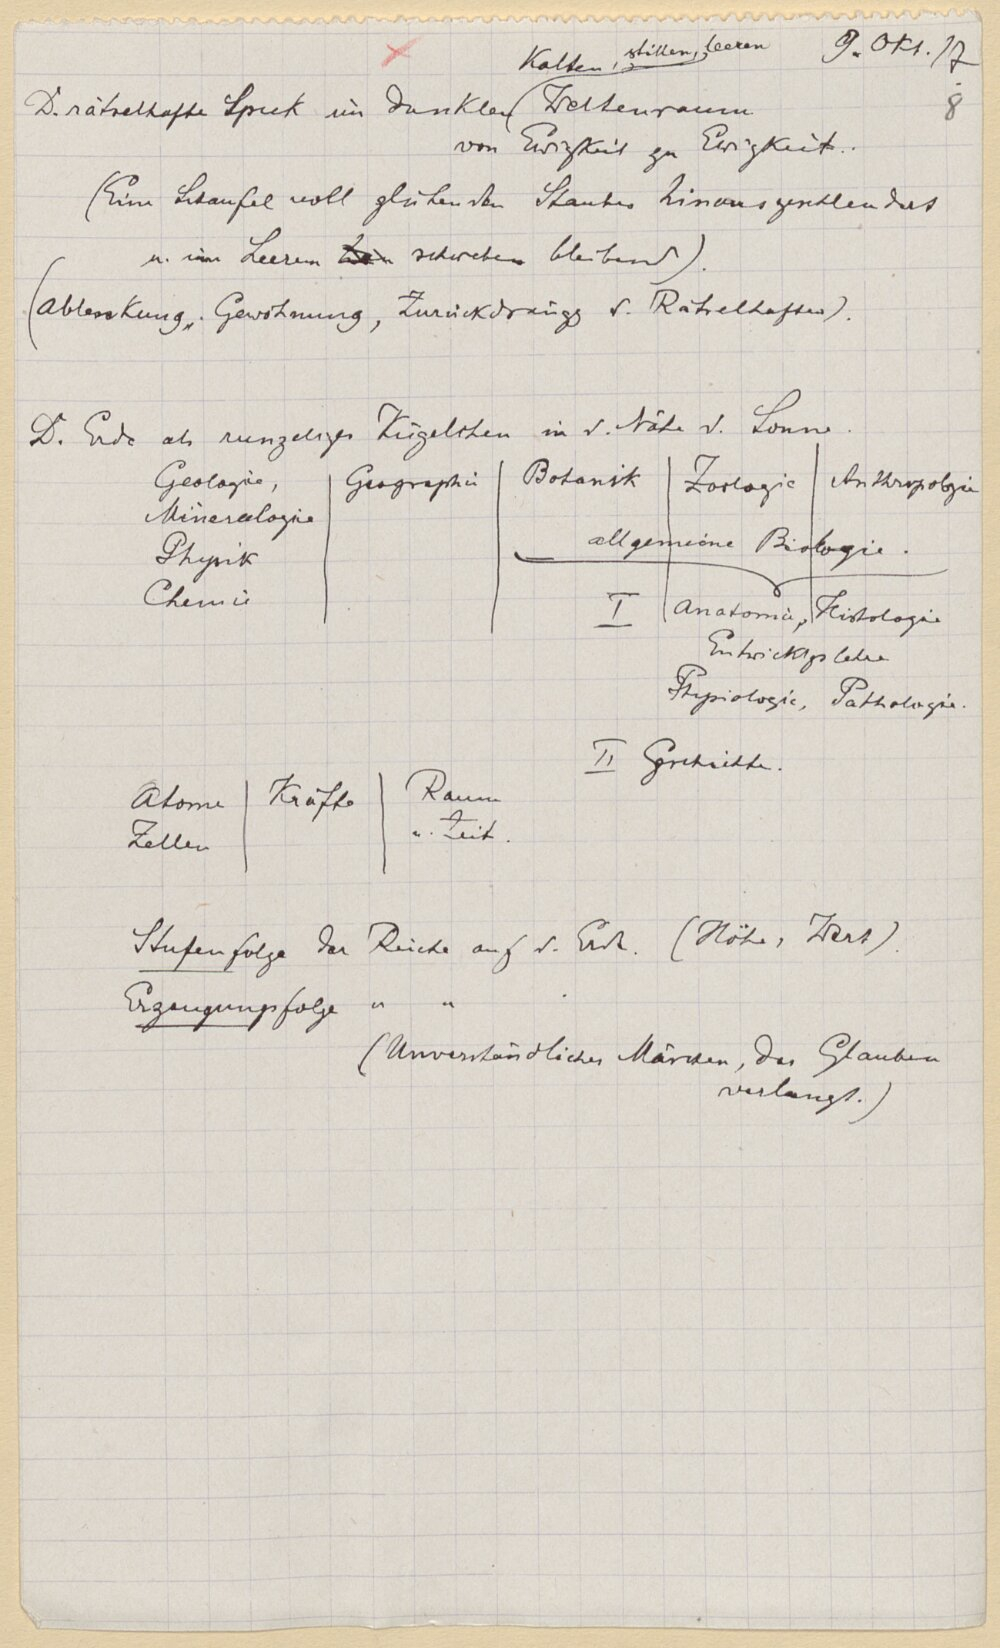 9. Okt. 17
8
kalten, stillen, leeren
D. rätselhafte Spuk im dunklen Weltenraum
von Ewigkeit zu Ewigkeit..
(Eine Schaufel voll glühenden Staubes hinausgeschleudert
u. im Leeren schweben bleibend).
(Ablenkung, Gewöhnung, Zurückdrängg d. Rätselhaften).
D. Erde als runzeliges Kügelchen in d. Nähe d. Sonne.
Geologie, Geographie Botanik Zoologie Anthropologie
Mineralogie
Physik allgemeine Biologie.
Chemie I Anatomie, Histologie
Entwicklgslehre
Physiologie, Pathologie.
II Geschichte.
Atome Kräfte Raum
Zellen u. Zeit.
Stufenfolge der Reiche auf d. Erde. (Höhe, Wert).
Erzeugungsfolge " "
(Unverständliches Märchen, das Glauben
verlangt.)